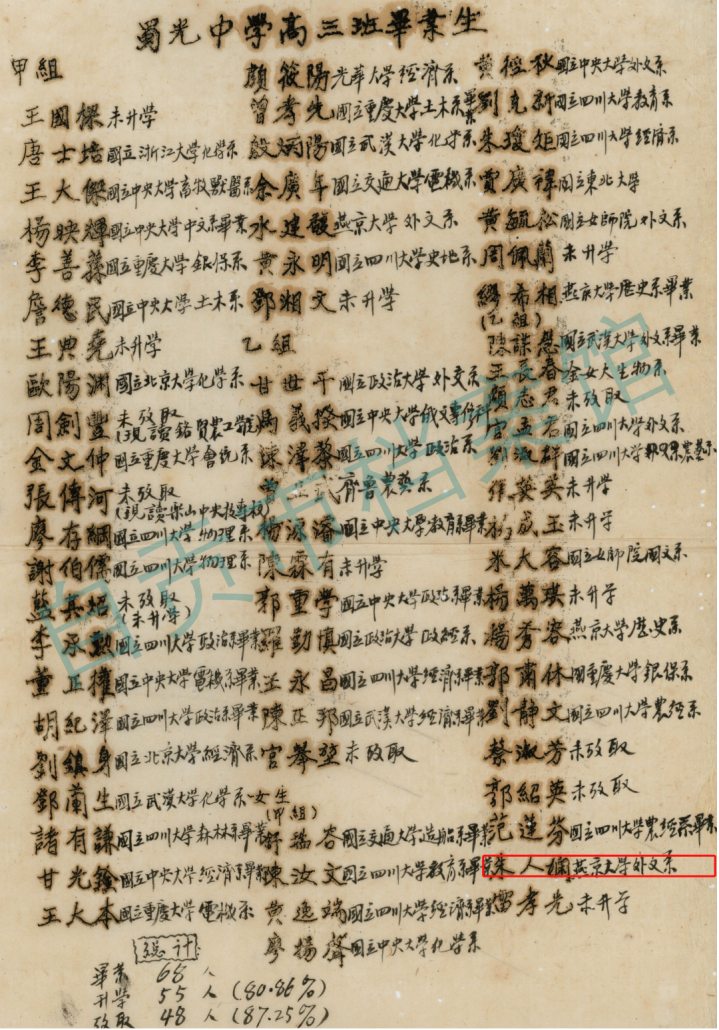 蜀光中学高三班畢業生
甲組
王國樑 未升學
唐士培 國立浙江大學化學系
王大傑 國立中央大學畜牧獸醫系
楊映輝 國立中央大學中文系畢業
李善蓀 國立重慶大學銀保系
詹德民 國立中央大學土木系
王典堯 未升学
歐陽淵 國立北京大學化學系
周劍豐 未攷取
(現讀銘賢農工學院)
金文仲 國立重慶大學會統系
張傳河 未攷取
(現讀樂山中央技專校)
廖存綱 國立四川大學物理系
謝伯儒 國立四川大學物理系
藍其炤 未攷取
(未升学)
李承勳 國立四川大學政治系畢業
董正權 國立中央大學電機系畢業
胡紀澤 國立四川大學政治系畢業
劉鎮身 國立北京大學經濟系
鄧蘭生 國立武漢大學化學系
諸有謙 國立四川大學森林系畢業
甘光銓 國立中央大學經濟系畢業
王大本 國立重慶大學電機系
顏筱陽 光華大學經濟系
曾孝先 國立重慶大學土木系畢業
殷炳陽 國立武漢大學化學系
余廣年 國立交通大學電機系
水建馥 燕京大學外文系
黄永明 國立四川大學史地系
鄧湘文 未升学
乙組
甘世平 國立政治大學外交系
馬義撥 國立中央大學俄文專修科
陳澤黎 國立四川大學政治系
曾正武 齊魯農藝系
楊源濬 國立中央大學教育系畢業
陳霖有 未升学
郭重學 國立中央大學政治系畢業
羅勤慎 國立政治大學政經系
王永昌 國立四川大學經濟系畢業
陳正邦 國立武漢大學經濟系畢業
官舉堃 未攷取
女生
(甲組)
舒瑞容 國立交通大學造船系畢業
陳汝文 國立四川大學教育系畢業
黄逸端 國立四川大學經濟系畢業
廖揚聲 國立中央大學化學系
黄徑秋 國立中央大學外文系
劉克新 國立四川大學教育系
朱瓊矩 國立四川大學經濟系
賈廣禕 國立東北大学
黄毓松 國立女師院外文系
周佩蘭 未升学
繆希相 燕京大學歷史系畢業
(乙組)
陳謀慧 國立武漢大學外文系畢業
王長春 金女大生物系
顧志君 未攷取
官孟君 國立四川大學外文系
劉淑群 國立四川大學農藝系
英英 未升学
成玉 未升学
米大容 國立女師院國文系
楊萬瑛 未升学
楊秀容 燕京大學歷史系
郭肅休 國重慶大學銀保系
劉靜文 國立四川大學農經系
蔡淑芳 未攷取
郭紹英 未攷取
范蓮芬 國立四川大學農經系畢業
朱人㭎 燕京大學外文系
雷孝光 未升学
總計
畢業 68 人
升學 55 人 (80.86%)
攷取 48 人 (87.25%)
自贡市档案馆